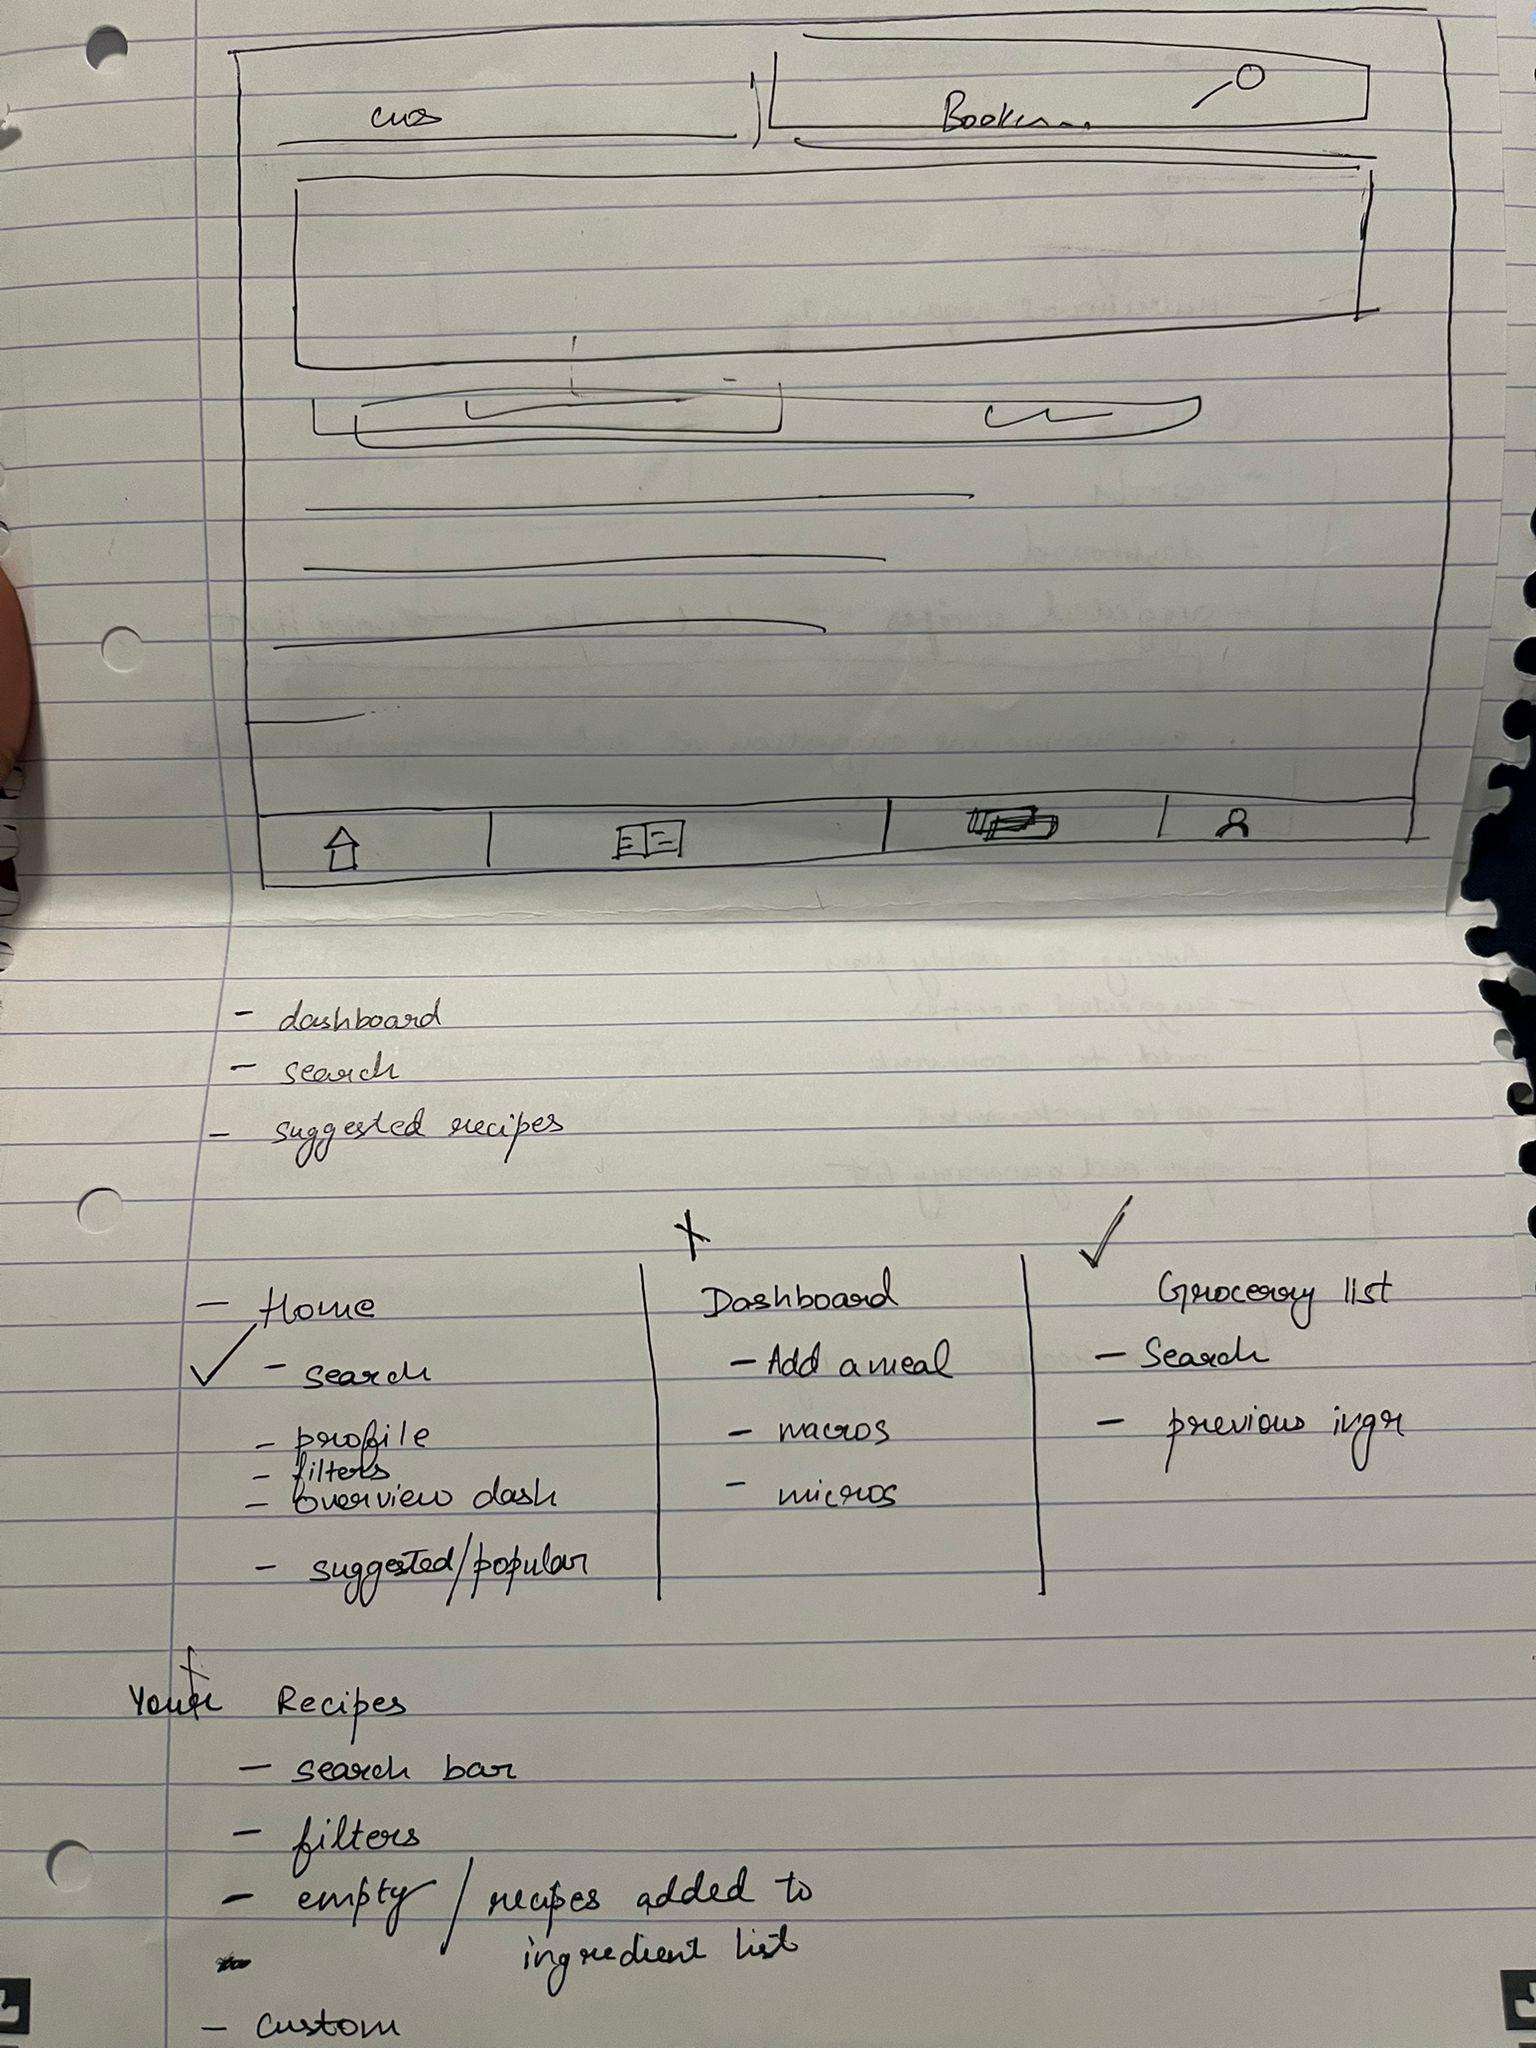 cus
Bookm...
- dashboard
- search
- suggested recipes
- Home
- search
- profile
- filters
- overview dash
- suggested/popular
Dashboard
- Add a meal
- macros
- micros
Grocerry list
- Search
- previous ingr
Your Recipes
- search bar
- filters
- empty / recipes added to
ingredient list
- custom